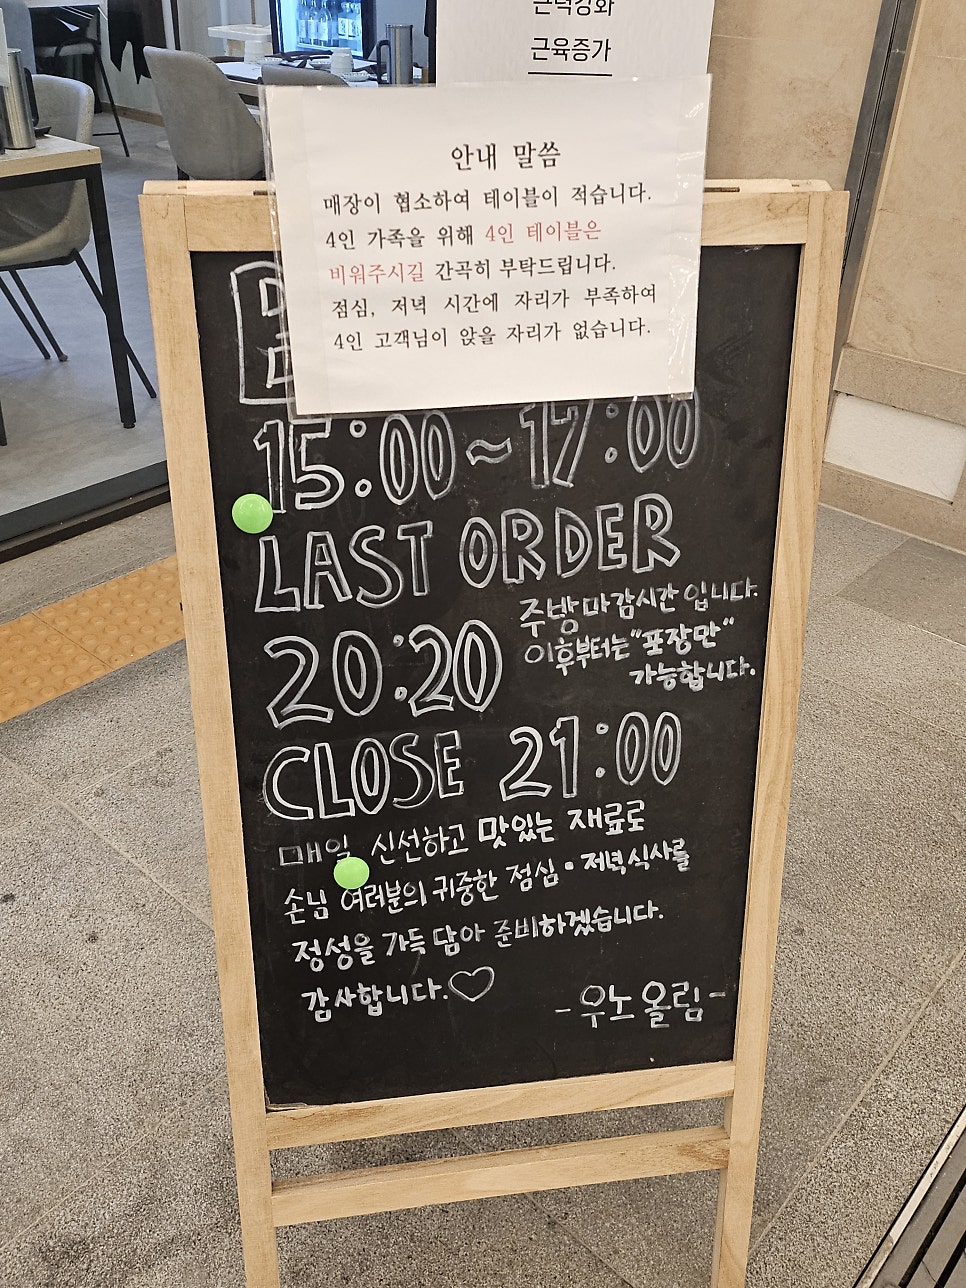 근력강화
근육증가
안내 말씀
매장이 협소하여 테이블이 적습니다.
4인 가족을 위해 4인 테이블은
비워주시길 간곡히 부탁드립니다.
점심, 저녁 시간에 자리가 부족하여
4인 고객님이 앉을 자리가 없습니다.
15:00~17:00
LAST ORDER
20:20
주방마감시간 입니다.
이후부터는 "포장만"
가능합니다.
CLOSE 21:00
매일 신선하고 맛있는 재료로
손님 여러분의 귀중한 점심•저녁식사를
정성을 가득 담아 준비하겠습니다.
감사합니다.♡
-우노 올림-